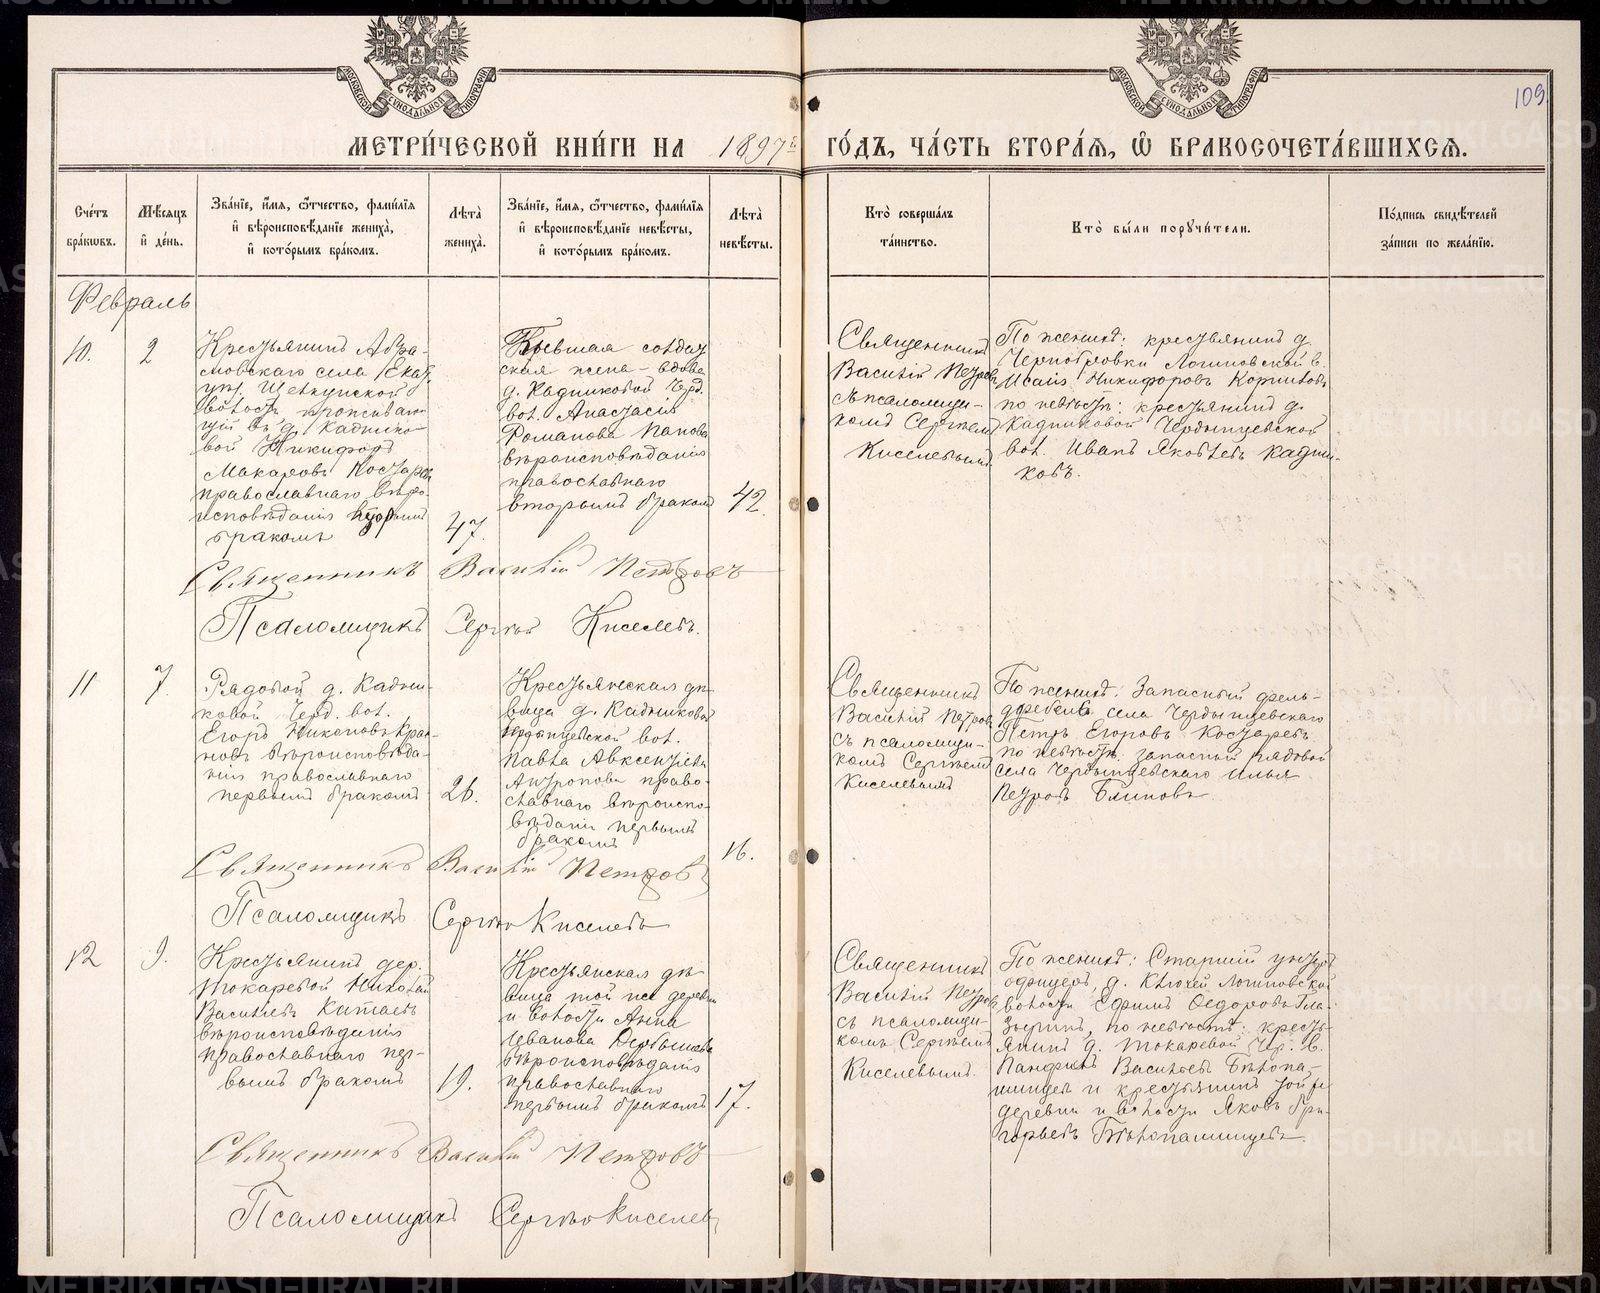 МЕТРИ́ЧЕСКОЙ КНИ́ГИ НА 1897й ГО́ДЪ, ЧА́СТЬ ВТОРА́Я, Ѿ БРАКОСОЧЕТА́ВШИХСЯ.
109.
Сче́тъ бра́кѡвъ.
Мѣ́сяцъ и̂ де́нь.
Зва́нїе, и́мя, ѻ́тчество, фами́лїя и̂ вѣроисповѣ́данїе жениха̀, и̂ кото́рымъ бра́комъ.
Лѣта̀ жениха̀.
Зва́нїе, и́мя, ѻ́тчество, фами́лїя и̂ вѣроисповѣ́данїе невѣ́сты, и̂ кото́рымъ бра́комъ.
Лѣта̀ невѣ́сты.
Кто̀ соверша́лъ та́инство.
Кто̀ бы́ли поручи́тели.
По́дпись свидѣ́телей за́писи по жела́нїю.
Февраль
10.
2
Крестьянинъ Абра-
мовскаго села Екат.
уѣз. Щелкунской
волости, проживаю-
щій въ д. Каднико-
вой Никифоръ
Макаровъ Костаревъ
православнаго вѣро-
исповѣданія вторымъ
бракомъ
47.
Бывшая солдат
ская жена - вдова
д. Кадниковой Черд.
вол. Анастасія
Романова Попова
вѣроисповѣданія
православнаго
вторымъ бракомъ
42.
Священникъ
Василій Петровъ
съ псаломщи-
комъ Сергѣемъ
Киселевымъ
По женихѣ: крестьянинъ д.
Чернобровки Логиновской в.
Исаія Никифоровъ
по невѣстѣ: крестьянинъ д.
Кадниковой Чердынцевской
вол. Иванъ Яковлевъ Кадни-
ковъ.
Священникъ Василій Петровъ
Псаломщикъ Сергѣй Киселевъ.
11
7.
Рядовой д. Кадни-
ковой Черд. вол.
Егоръ Никоновъ
вѣроисповѣда-
нія православнаго
первымъ бракомъ
26.
Крестьянская дѣ-
вица д. Кадниковой
Чердынцевской вол.
Павла Авксентіева
Антропова право-
славнаго вѣроиспо-
вѣданія первымъ
бракомъ
16.
Священникъ
Василій Петровъ
съ псаломщи-
комъ Сергѣемъ
Киселевымъ
По женихѣ: Запасный фель-
дфебель села Чердынцевскаго
Петръ Егоровъ Костаревъ
по невѣстѣ запасный рядовой
села Чердынцевскаго Илья
Петровъ Блиновъ.
Священникъ Василій Петровъ
Псаломщикъ Сергѣй Киселевъ
12
9.
Крестьянинъ дер.
Токаревой Николай
Васильевъ Китаевъ
вѣроисповѣданія
православнаго пер-
вымъ бракомъ
19.
Крестьянская дѣ-
вица той же деревни
и волости Анна
Иванова Дербышева
вѣроисповѣданія
православнаго
первымъ бракомъ
17.
Священникъ
Василій Петровъ
съ псаломщи-
комъ Сергѣемъ
Киселевымъ.
По женихѣ: Старшій унтеръ
офицеръ, д. Ключей Логиновской
волости Ефимъ Ѳедоровъ Гла-
зыринъ, по невѣстѣ: кресть-
янинъ д. Токаревой Чер. в.
Панфилъ Васильевъ Бѣлопа-
шинцевъ и крестьянинъ той же
деревни и волости Яковъ Гри-
горьевъ Бѣлопашинцевъ.
Священникъ Василій Петровъ
Псаломщикъ Сергѣй Киселевъ
METRIKI.GASO-URAL.RU